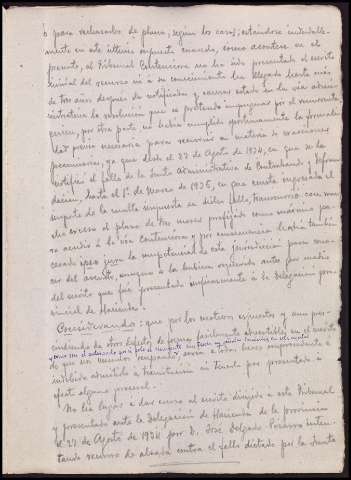 o para rechazarlos de plano, según los casos; estándose indudable-
mente en este último supuesto cuando, como acontece en el
presente, al Tribunal Contencioso no ha sido presentado el escrito
inicial del recurso ni a su conocimiento ha llegado hasta más
de tres años después de notificada y causar estado en la vía admi-
nistrativa la resolución que se pretende impugnar por el recurrente,
quien, por otra parte no había cumplido oportunamente la formali-
dad previa necesaria para recurrir en materia de exacciones
pecuniarias, ya que desde el 27 de Agosto de 1934, en que se le
notificó el fallo de la Junta Administrativa de Contrabando y Defrau-
dación, hasta el 1º de Marzo de 1936, en que consta ingresado el
importe de la multa impuesta en dicho fallo, transcurrió con mu-
cho exceso el plazo de tres meses prefijado como máximo pa-
ra acudir a la vía contenciosa y por consecuencia había también
cesado ipso jure la competencia de esta jurisdicción para cono-
cer del asunto, aunque a la misma
del escrito que fué presentado impropiamente a la Delegación pro-
vincial de Hacienda.
Considerando: que por los motivos expuestos y aun pres-
cindiendo de otros defectos de forma fácilmente advertibles en el escrito
de que nos venimos ocupando, sería a todas luces improcedente e
indebido admitirlo a tramitación ni tenerle por presentado a
efecto alguno procesal.
No ha lugar a dar curso al escrito dirigido a este Tribunal
y presentado ante la Delegación de Hacienda de la provincia
el 27 de Agosto de 1934 por D. José Delgado Pizarro inten-
tando recurso de alzada contra el fallo dictado por la Junta